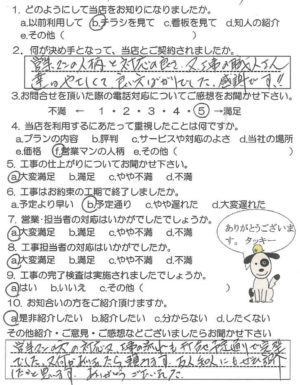 1. どのようにして当店をお知りになりましたか。
a.以前利用して b.チラシを見て c.看板を見て d.知人の紹介
e.その他（ ）
2. 何が決め手となって、当店とご契約されましたか。
営業さんの人柄と対応の良さ
3.お問合せを頂いた際の電話対応についてご感想をお聞かせ下さい。
不満 ← 1・2・3・4・5 →満足
4. 当店を利用するにあたって重視したことは何ですか。
a.プランの内容 b.評判 c.サービスや対応のよさ d.当社の場所
e.価格 f.営業マンの人柄 e.その他（ ）
5. 工事の仕上がりについてお聞かせ下さい。
a.大変満足 b.満足 c.やや不満 d.不満
6. 工事はお約束の工期で終了しましたか。
a.予定より早い b.予定通り c.やや遅れた d.大変遅れた
7. 営業・担当者の対応はいかがでしたでしょうか。
a.大変満足 b.満足 c.やや不満 d.不満
8. 工事担当者の対応はいかがでしたか。
a.大変満足 b.満足 c.やや不満 d.不満
9. 工事の完了検査は実施されましたでしょうか。
a.はい b.いいえ c.その他（ ）
10. お知合いの方をご紹介頂けますか。
a.是非紹介したい b.紹介したい c.分からない d.したくない
その他紹介・ご意見・ご感想などございましたらお聞かせ下さい
ありがとうございま
す。タッキー